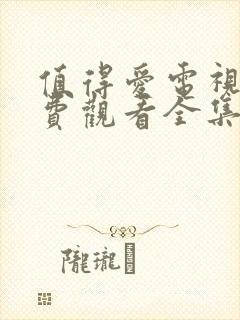 值得愛電視
費觀看全集
隴瓏